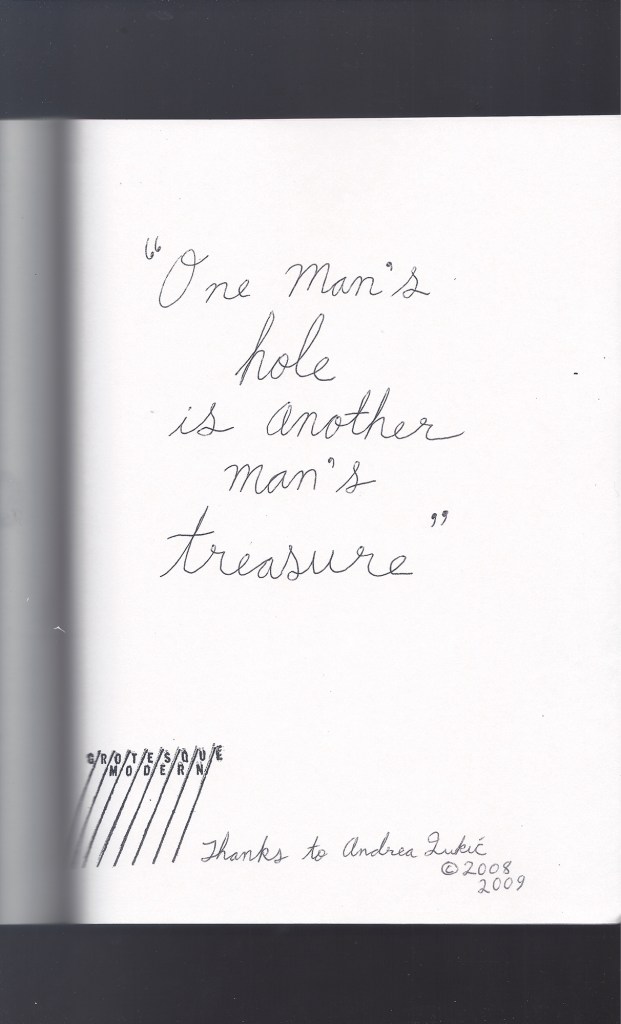 “One man's
hole
is another
man's
treasure”
GROTESQUE
MODERN
Thanks to Andrea Lukić
©2008
2009